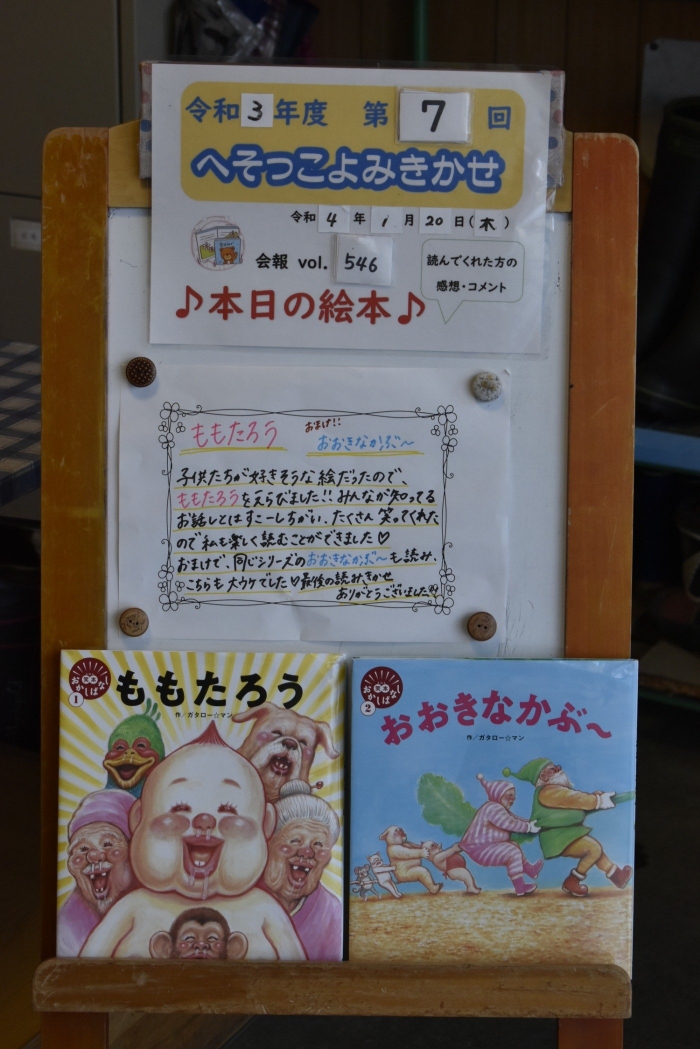 令和3年度 第7回
へそっこよみきかせ
令和4年1月20日(木)
会報 vol. 546
読んでくれた方の
感想・コメント
♪本日の絵本♪
ももたろう おまけ!! おおきなかぶ〜
子供たちが好きそうな絵だったので、
ももたろうをえらびました!! みんなが知ってる
お話しとはすこーしちがい、たくさん笑ってくれた
ので私も楽しく読むことができました♡
おまけで、同じシリーズのおおきなかぶ〜も読み、
こちらも大ウケでした♡最後の読みきかせ
ありがとうございました
おかしばなし
1
ももたろう
作/ガタロー☆マン
おかしばなし
2
おおきなかぶ〜
作/ガタロー☆マン